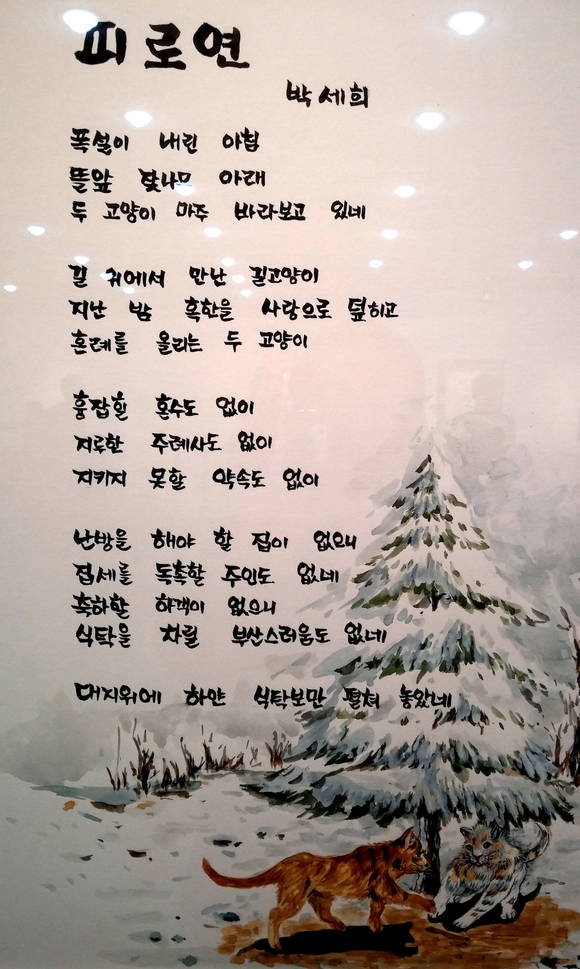 피로연
박세희
폭설이 내린 아침
뜰앞 잣나무 아래
두 고양이 마주 바라보고 있네
길 귀에서 만난 길고양이
지난 밤 혹한을 사랑으로 덮히고
혼례를 올리는 두 고양이
흉잡힐 혼수도 없이
지루한 주례사도 없이
지키지 못할 약속도 없이
난방을 해야 할 집이 없으니
집세를 독촉할 주인도 없네
축하할 하객이 없으니
식탁을 차릴 부산스러움도 없네
대지위에 하얀 식탁보만 펼쳐 놓았네